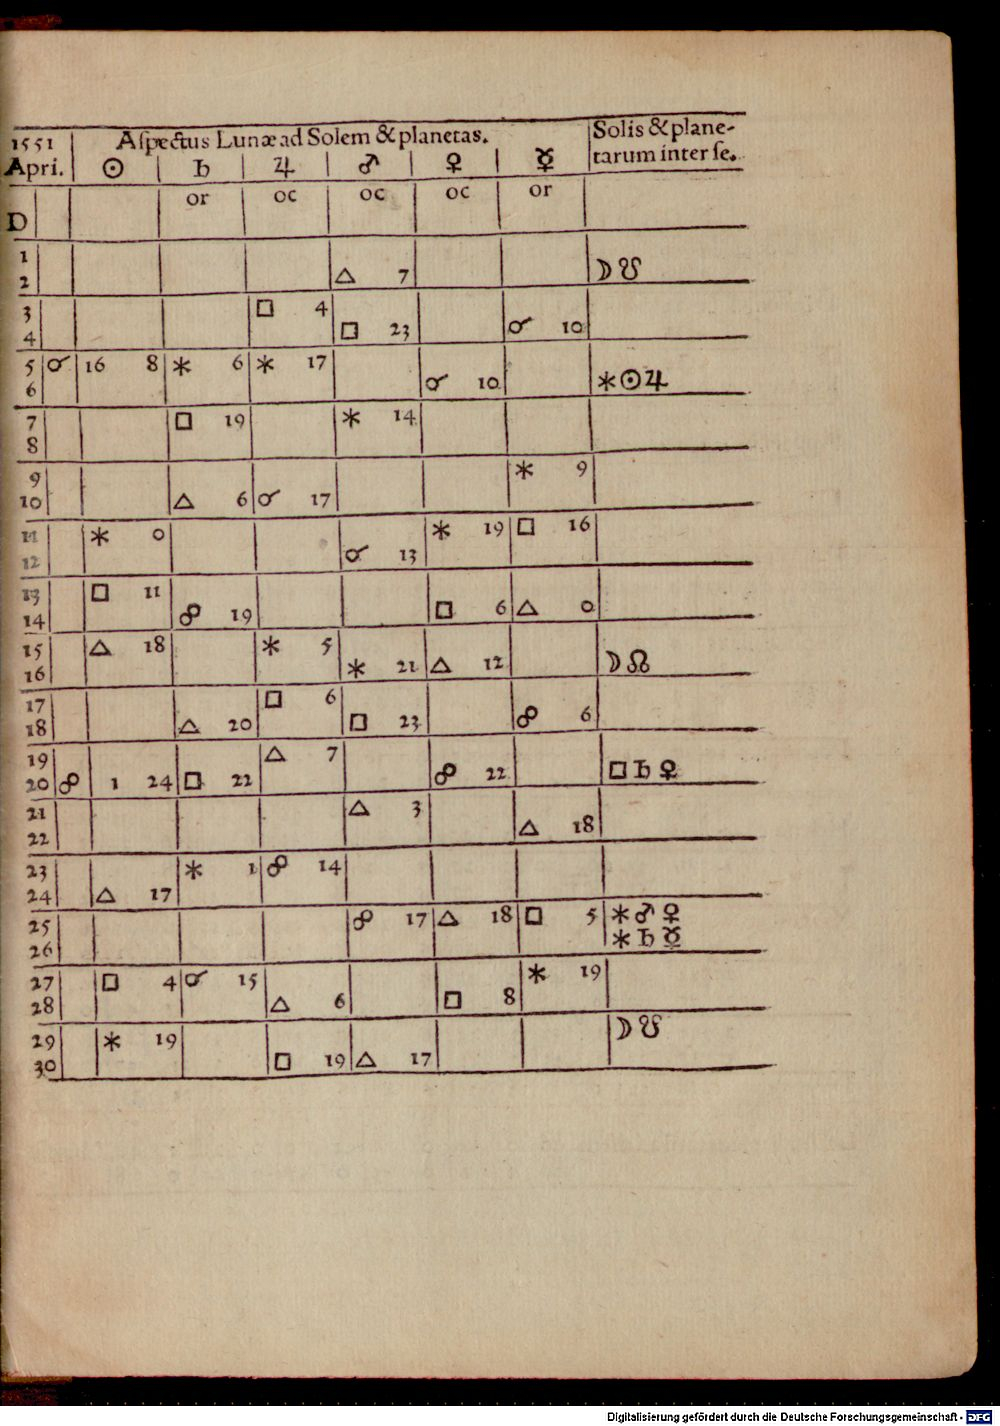 1551 Aſpectus Lunæ ad Solem & planetas. Solis & plane-
Apri. ☉ ♄ ♃ ♂ ♀ ☿ tarum inter ſe.
D or oc oc oc or
1
2 △ 7 ☽ ☋
3 □ 4
4 □ 23 ☌ 10
5 ☌ 16 8 ⚹ 6 ⚹ 17
6 ☌ 10 ⚹ ☉ ♃
7 □ 19 ⚹ 14
8
9 ⚹ 9
10 △ 6 ☌ 17
11 ⚹ 0 ⚹ 19 □ 16
12 ☌ 13
13 □ 11
14 ☍ 19 □ 6 △ 0
15 △ 18 ⚹ 5
16 ⚹ 21 △ 12 ☽ ☊
17 □ 6
18 △ 20 □ 23 ☍ 6
19 △ 7
20 ☍ 1 24 □ 22 ☍ 22 □ ♄ ♀
21 △ 3
22 △ 18
23 ⚹ 1 ☍ 14
24 △ 17
25 ☍ 17 △ 18 □ 5 ⚹ ♂ ♀
26 ⚹ ♄ ☿
27 □ 4 ☌ 15 ⚹ 19
28 △ 6 □ 8
29 ⚹ 19 ☽ ☋
30 □ 19 △ 17
Digitalisierung gefördert durch die Deutsche Forschungsgemeinschaft - DFG